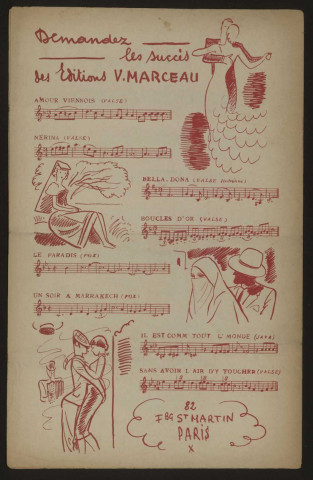 Demandez
les succès
des Editions V. MARCEAU
AMOUR VIENNOIS (VALSE)
NERINE (VALSE)
BELLA DONA (VALSE
BOUCLES D'OR (VALSE)
LE PARADIS (FOX)
UN SOIR A MARRAKECH (FOX)
IL EST COMM TOUT L'MONDE (JAVA)
SANS AVOIR L'AIR D'Y TOUCHER (VALSE)
82
F BG ST MARTIN
PARIS
X